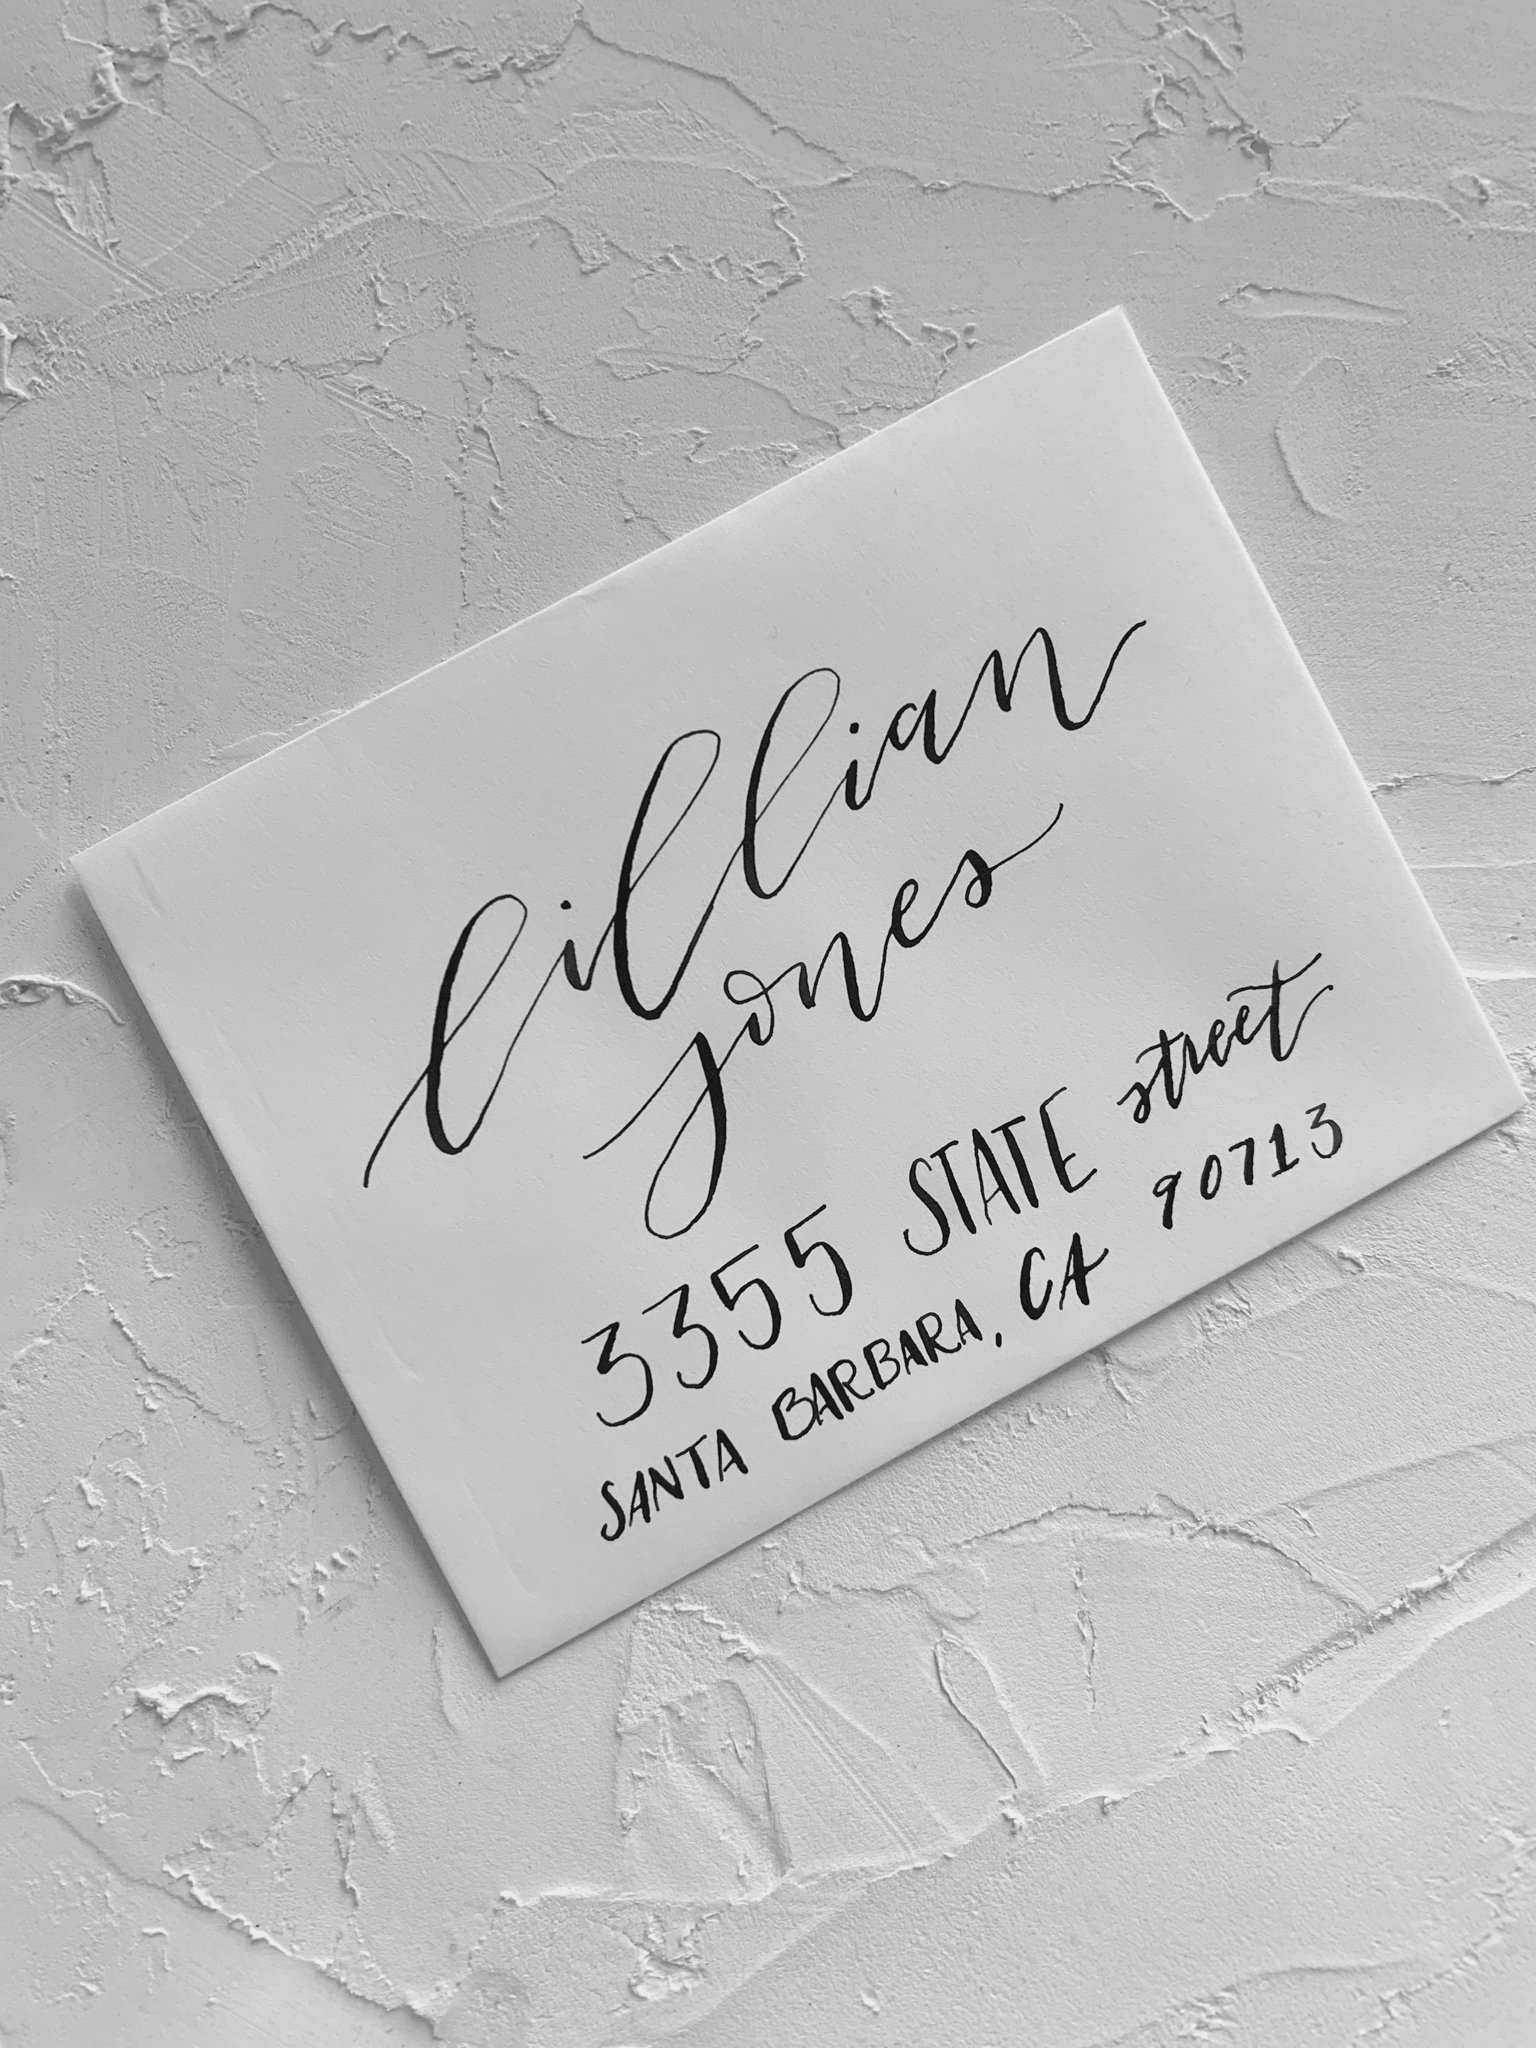 lillian
jones
3355 STATE street
SANTA BARBARA, CA 90713